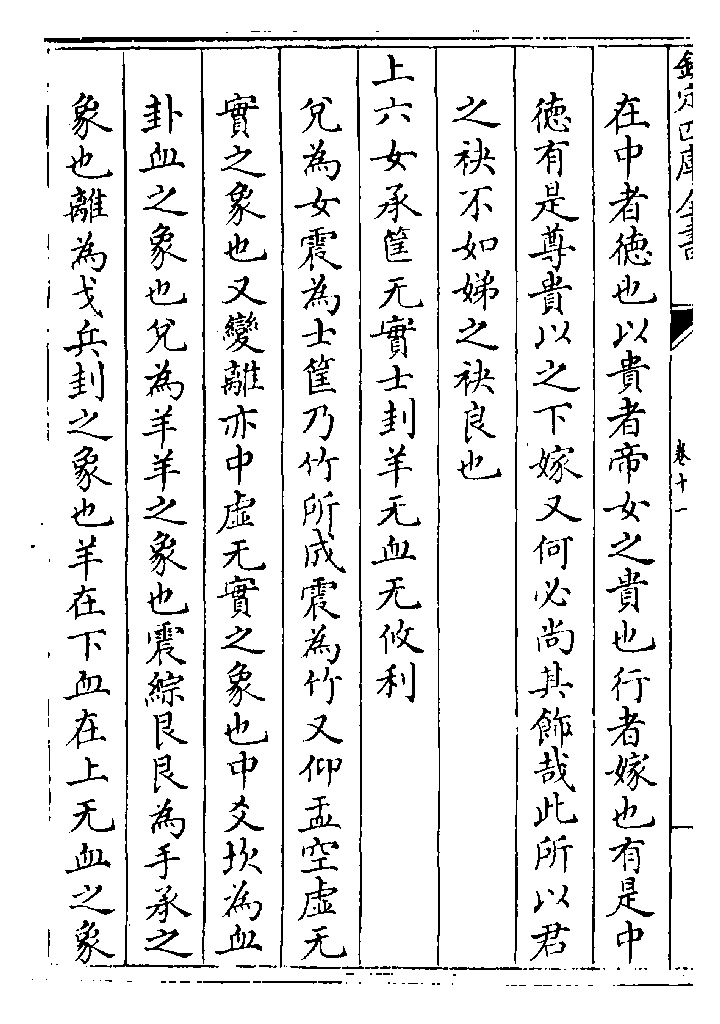 欽定四庫全書
卷十一
在中者徳也以貴者帝女之貴也行者嫁也有是中
徳有是尊貴以之下嫁又何必尚其飾哉此所以君
之袂不如娣之袂良也
上六女承筐无實士刲羊无血无攸利
兌為女震為士筐乃竹所成震為竹又仰盂空虛无
實之象也又變離亦中虛无實之象也中爻坎為血
卦血之象也兌為羊羊之象也震綜艮艮為手承之
象也離為戈兵刲之象也羊在下血在上无血之象